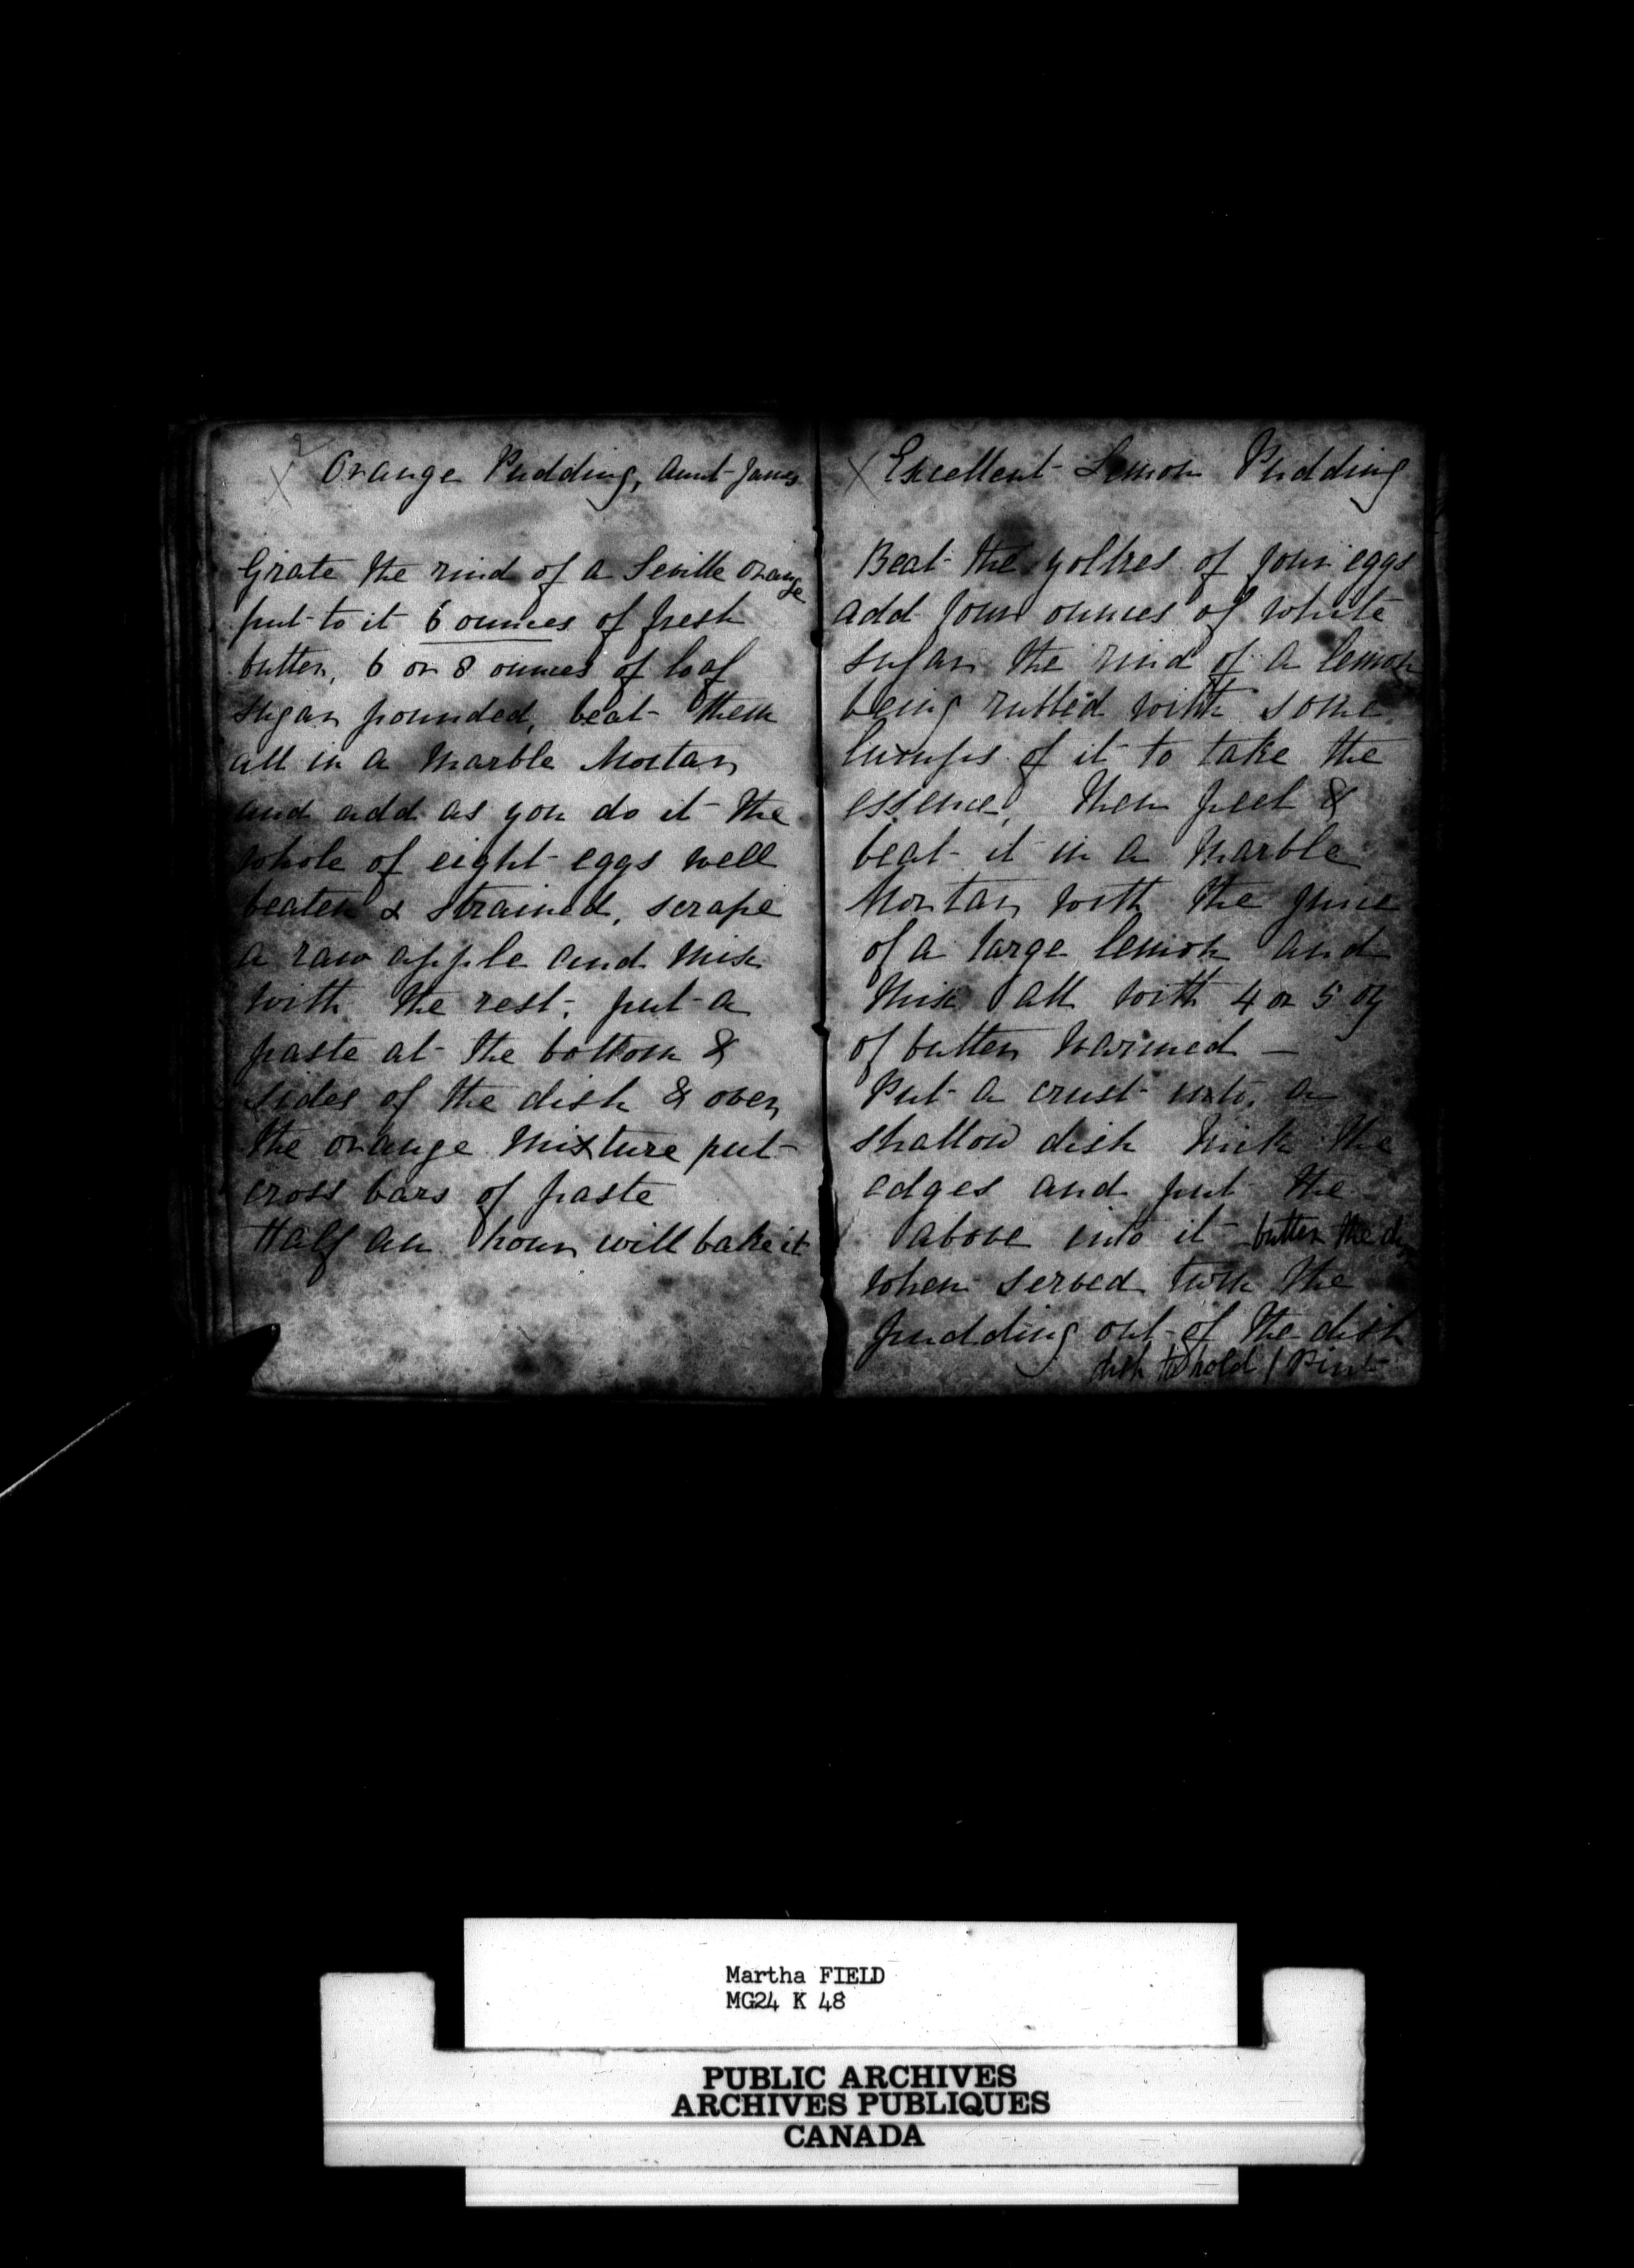 X 2
Orange Pudding, Aunt James
Grate the rind of a Seville orange
put to it 6 ounces of fresh
butter, 6 or 8 ounces of loaf
sugar pounded, beat them
all in a Marble Mortar
and add as you do it the
whole of eight eggs well
beaten & strained, scrape
a raw apple and mix
with the rest, put a
paste at the bottom &
sides of the dish & over
the orange mixture put
cross bars of paste
Half an hour will bake it
X Excellent Lemon Pudding
Beat the yolkes of four eggs
add four ounces of white
sugar the rind of a lemon
being rubbed with some
lumps of it to take the
essence, then peel &
beat it in a Marble
Mortar with the juice
of a large lemon and
mix all with 4 or 5 oz
of butter warmed —
Put a crust into a
shallow dish nick the
edges and put the
above into it butter the dish
when served turn the
pudding out of the dish
dish to hold 1 Pint
Martha FIELD
MG24 K 48
PUBLIC ARCHIVES
ARCHIVES PUBLIQUES
CANADA